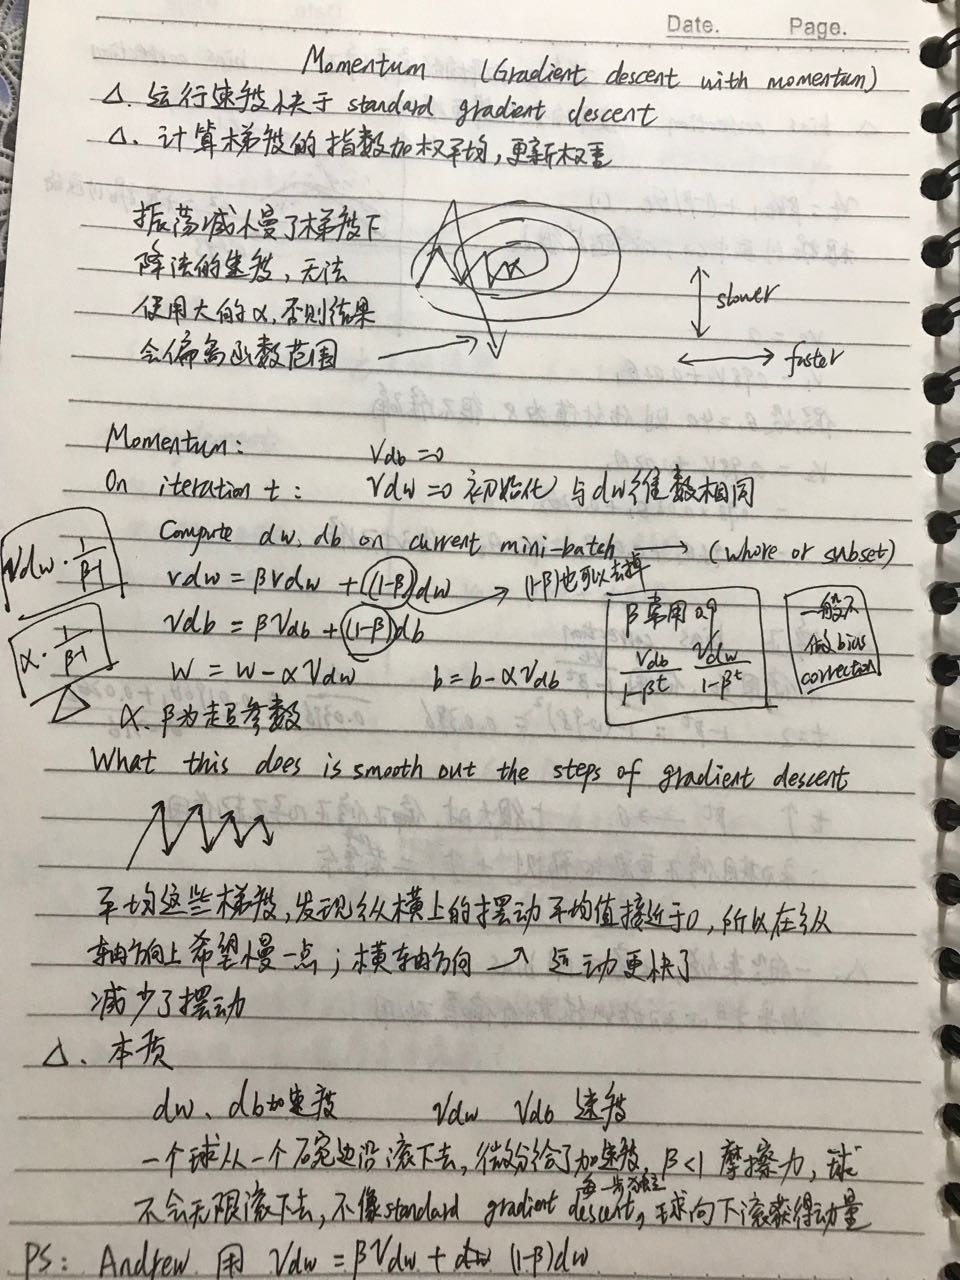 Date. Page.
Momentum (Gradient descent with momentum)
△. 运行速度快于 standard gradient descent
△. 计算梯度的指数加权平均,更新权重
振荡减慢了梯度下
降法的速度,无法
使用大的α,否则结果
会偏离函数范围
slower
faster
Momentum: Vdb=0
On iteration t: Vdw=0 初始化 与dw维数相同
Compute dw, db on current mini-batch → (whore or subset)
Vdw · 1/(β-1)
Vdw = βVdw + (1-β)dw → (1-β)也可以去掉
Vdb = βVdb + (1-β)db
α · 1/(β-1)
W = W - αVdw b = b - αVdb
β常用 0.9
Vdb/(1-β^t) Vdw/(1-β^t)
一般不
做bias
correction
α、β为超参数
What this does is smooth out the steps of gradient descent
平均这些梯度,发现纵横上的摆动平均值接近于0,所以在纵
轴方向上希望慢一点;横轴方向 → 运动更快了
减少了摆动
△. 本质
dw、db加速度 Vdw Vdb 速度
一个球从一个碗边沿滚下去,微分给了加速度,β<1 摩擦力,球
每一步独立
不会无限滚下去,不像standard gradient descent,球向下滚获得动量
PS: Andrew 用 Vdw = βVdw + (1-β)dw